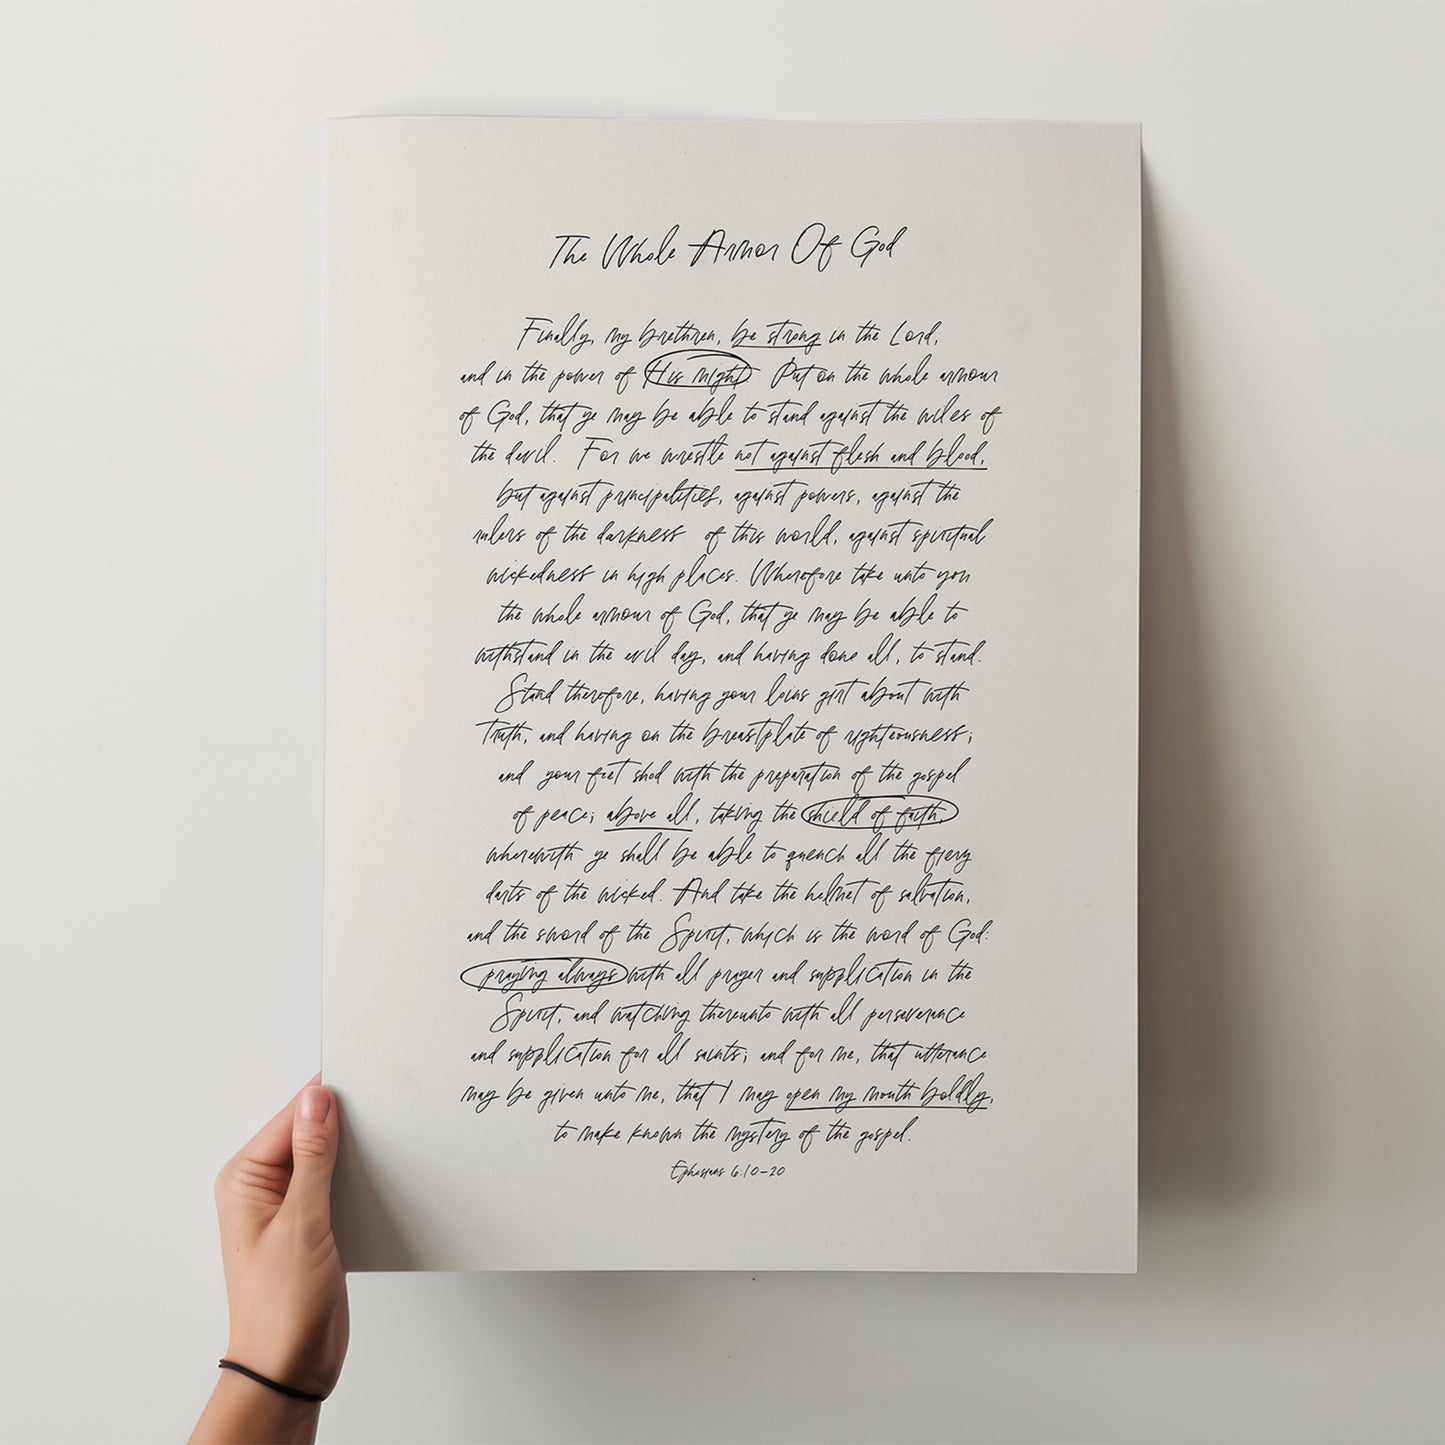 The Whole Armor Of God
Finally, my brethren, be strong in the Lord,
and in the power of His might Put on the whole armour
of God, that ye may be able to stand against the wiles of
the devil. For we wrestle not against flesh and blood,
but against principalities, against powers, against the
rulers of the darkness of this world, against spiritual
wickedness in high places. Wherefore take unto you
the whole armour of God, that ye may be able to
withstand in the evil day, and having done all, to stand.
Stand therefore, having your loins girt about with
Truth, and having on the breastplate of righteousness;
and your feet shod with the preparation of the gospel
of peace; above all, taking the shield of faith,
wherewith ye shall be able to quench all the fiery
darts of the wicked. And take the helmet of salvation,
and the sword of the Spirit, which is the word of God:
praying always with all prayer and supplication in the
Spirit, and watching thereunto with all perseverance
and supplication for all saints; and for me, that utterance
may be given unto me, that I may open my mouth boldly,
to make known the mystery of the gospel.
Ephesians 6:10-20